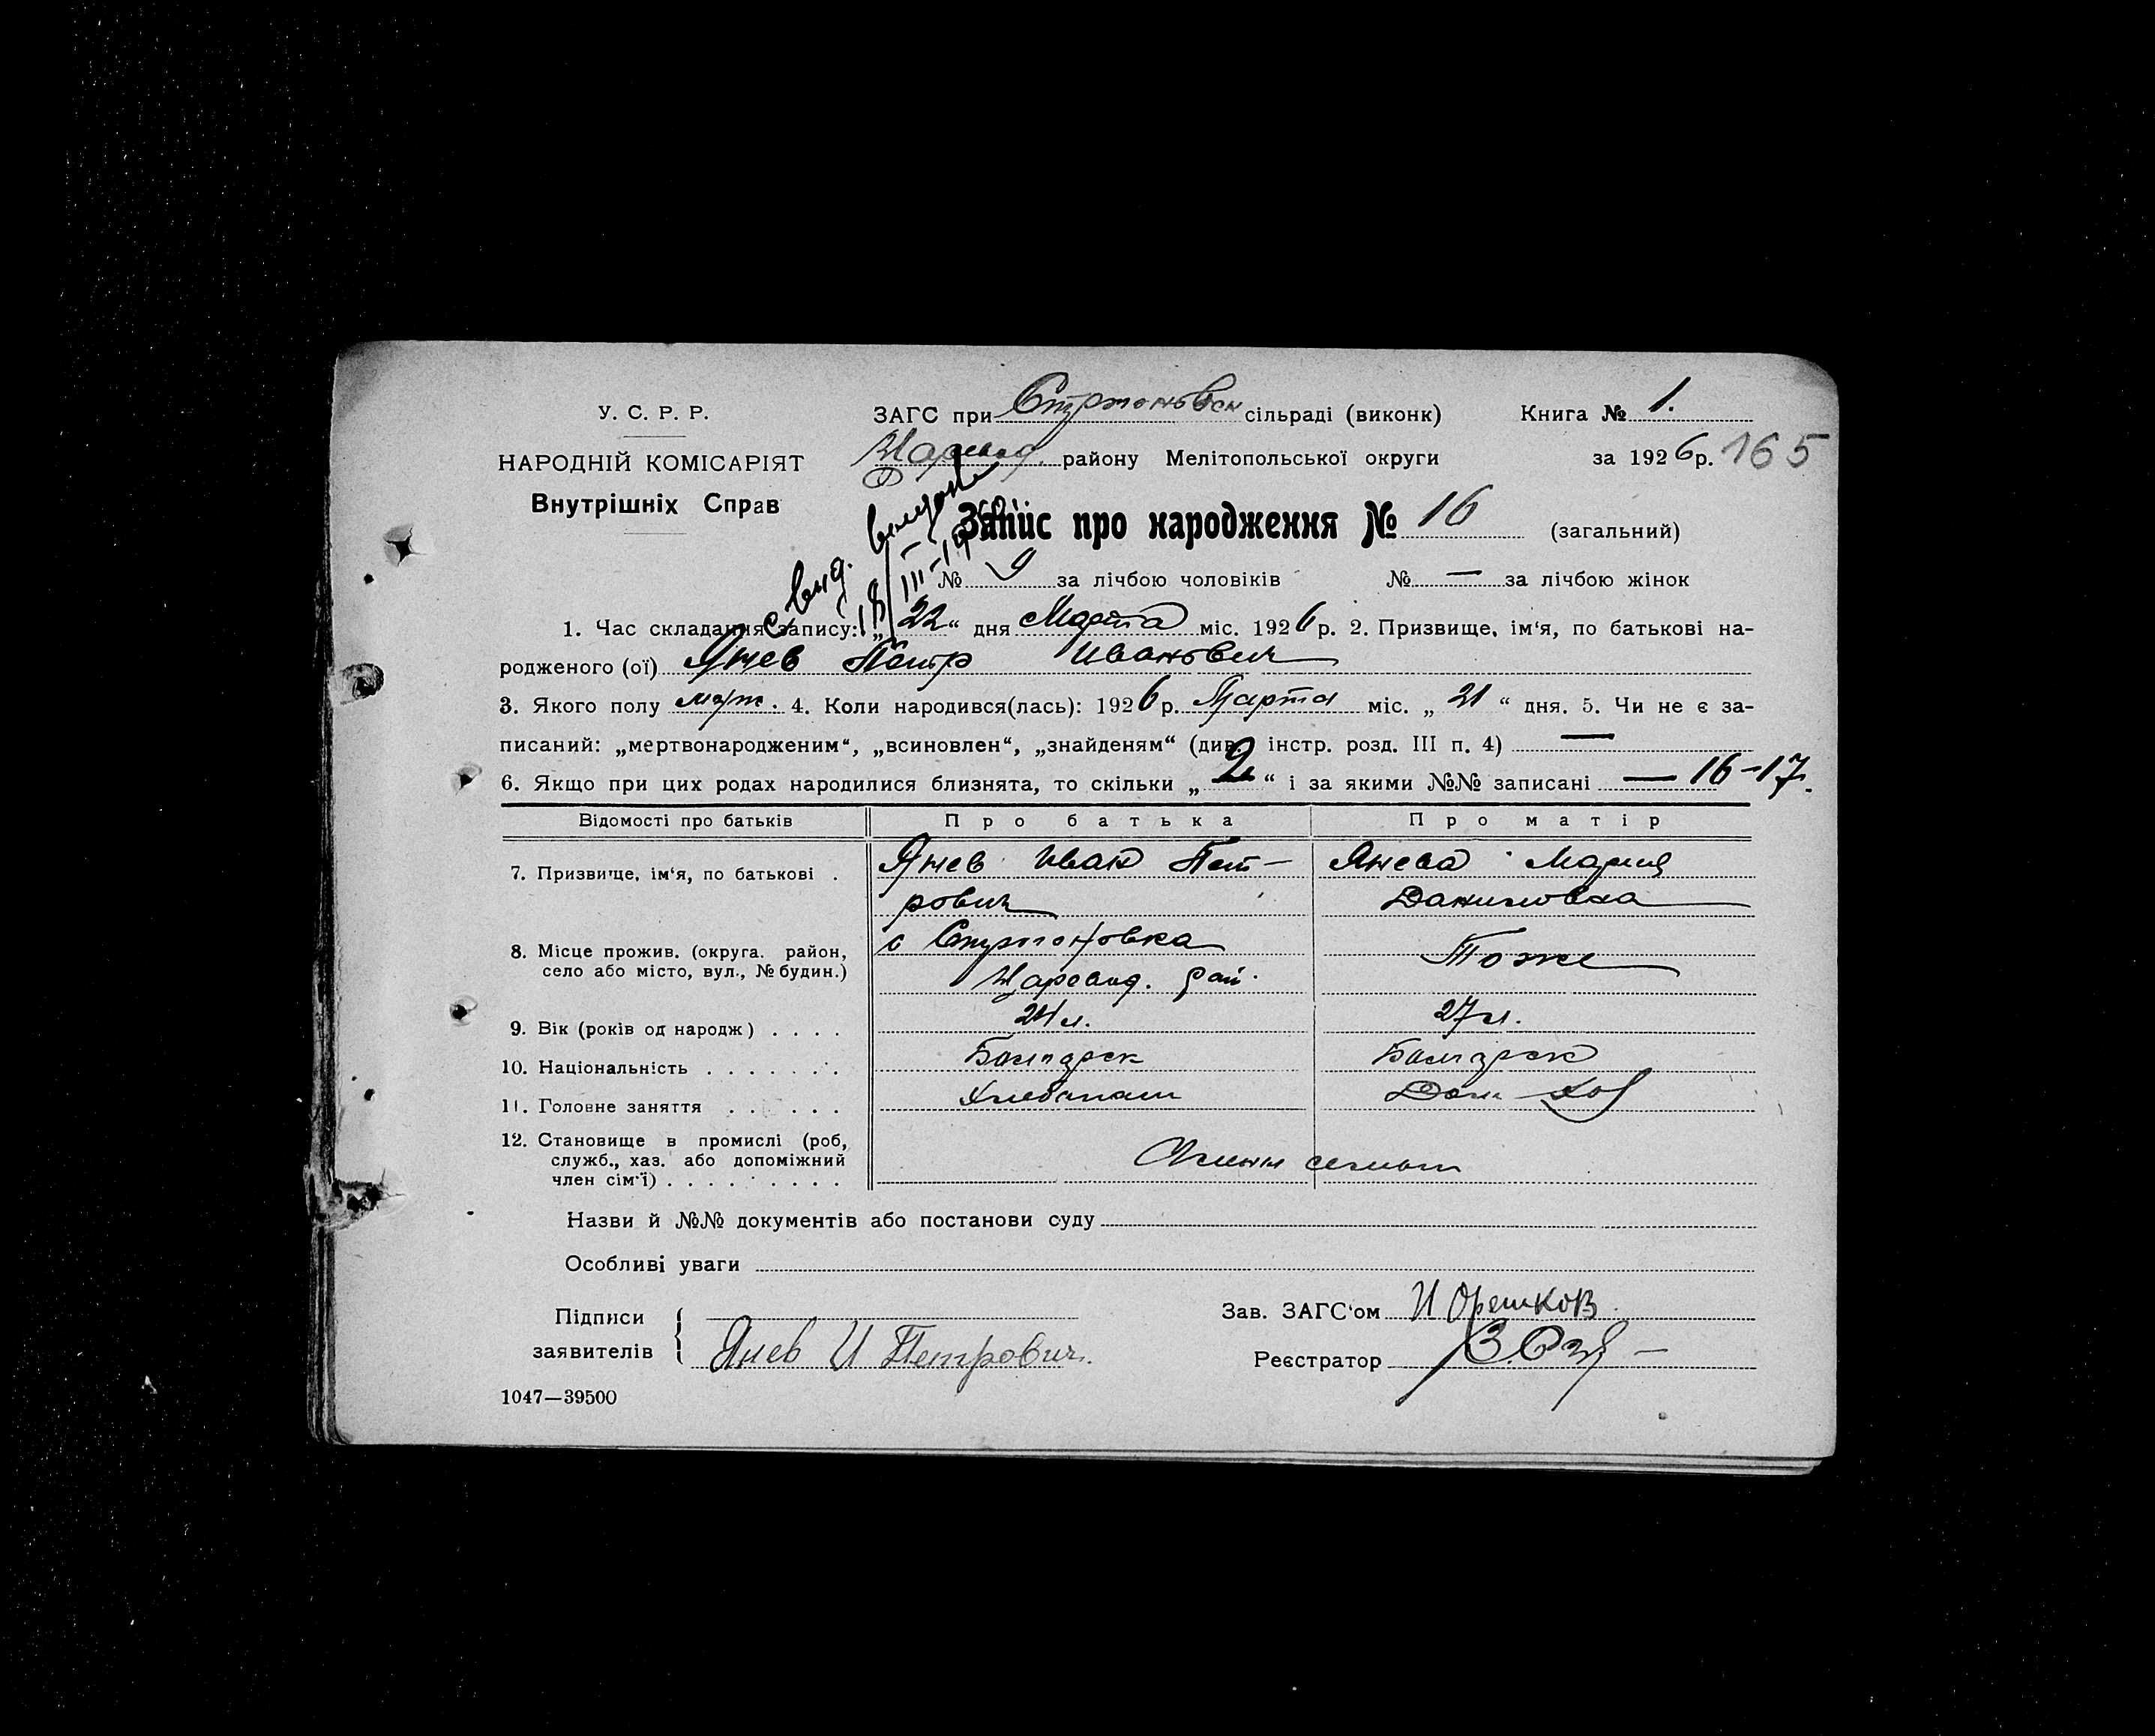 У. С. Р. Р.
ЗАГС при Строгоновск сільраді (виконк) Книга № 1.
НАРОДНІЙ КОМІСАРІЯТ
Царевод. району Мелітопольської округи за 1926р. 165
Внутрішніх Справ
Запис про народження № 16 (загальний)
№ 9 за лічбою чоловіків № — за лічбою жінок
Свид. выдано
18/III-19
1. Час складання запису: „22“ дня Марта міс. 1926 р. 2. Призвище, ім‘я, по батькові на-
родженого (ої) Янев Петр Иванович
3. Якого полу муж. 4. Коли народився(лась): 1926 р. Марта міс. „ 21 “ дня. 5. Чи не є за-
писаний: „мертвонародженим“, „всиновлен“, „знайденям“ (див. інстр. розд. III п. 4) —
6. Якщо при цих родах народилися близнята, то скільки „ 2 “ і за якими №№ записані — 16-17.
Відомості про батьків Про батька Про матір
7. Призвище, ім‘я, по батькові . Янев Иван Пет- Янева Мария
рович Даниловна
8. Місце прожив. (округа. район, село або місто, вул., № будин.) с Строгоновка Тоже
Царевод. рай.
9. Вік (років од народж) . . . . 24 л. 27 л.
10. Національність . . . . . . . Болгарск Болгарск
11. Головне заняття . . . . . . Хлебопаш Дом Хоз
12. Становище в промислі (роб, служб., хаз. або допоміжний член сім‘ї) . . . . . . . . .
Назви й №№ документів або постанови суду
Особливі уваги
Підписи заявителів Янев И Петрович.
Зав. ЗАГС‘ом И Орешков
Реєстратор
1047—39500